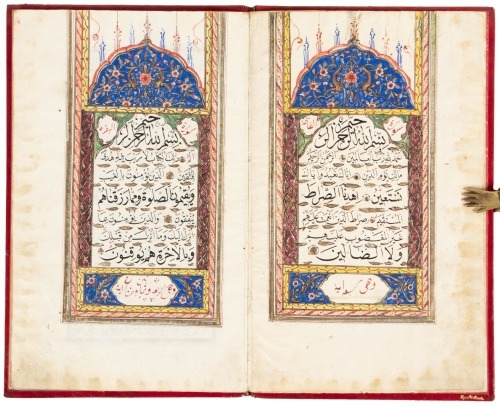 بسم الله الرحمن الرحيم
الحمد لله رب العالمين الرحمن الرحيم
ملك يوم الدين اياك نعبد واياك
نستعين اهدنا الصراط
المستقيم صراط الذين انعمت عليهم
غير المغضوب عليهم
ولا الضالين
وهي سبع اية
بسم الله الرحمن الرحيم
الم ذلك الكتاب لا ريب فيه هدى
للمتقين الذين يؤمنون بالغيب
ويقيمون الصلوة ومما رزقناهم
ينفقون والذين يؤمنون بما
انزل اليك وما انزل من قبلك
وبالاخرة هم يوقنون